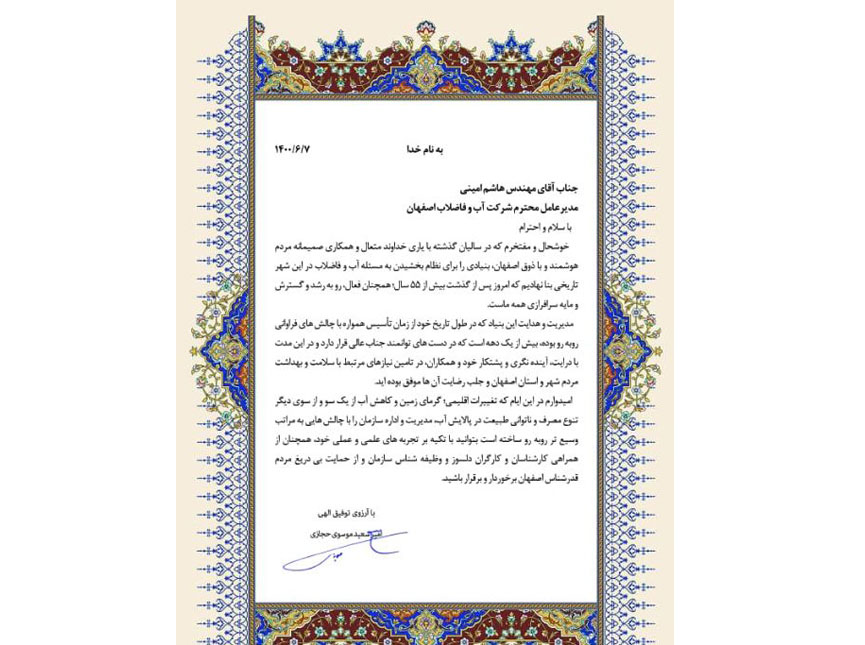 به نام خدا
۱۴۰۰/۶/۷
جناب آقای مهندس هاشم امینی
مدیرعامل محترم شرکت آب و فاضلاب اصفهان
با سلام و احترام
خوشحال و مفتخرم که در سالیان گذشته با یاری خداوند متعال و همکاری صمیمانه مردم
هوشمند و با ذوق اصفهان، بنیادی را برای نظام بخشیدن به مسئله آب و فاضلاب در این شهر
تاریخی بنا نهادیم که امروز پس از گذشت بیش از ۵۵ سال؛ همچنان فعال، رو به رشد و گسترش
و مایه سرافرازی همه ماست.
مدیریت و هدایت این بنیاد که در طول تاریخ خود از زمان تأسیس همواره با چالش های فراوانی
روبه رو بوده، بیش از یک دهه است که در دست های توانمند جناب عالی قرار دارد و در این مدت
با درایت، آینده نگری و پشتکار خود و همکاران، در تامین نیازهای مرتبط با سلامت و بهداشت
مردم شهر و استان اصفهان و جلب رضایت آن ها موفق بوده اید.
امیدوارم در این ایام که تغییرات اقلیمی؛ گرمای زمین و کاهش آب از یک سو و از سوی دیگر
تنوع مصرف و ناتوانی طبیعت در پالایش آب، مدیریت و اداره سازمان را با چالش هایی به مراتب
وسیع تر روبه رو ساخته است بتوانید با تکیه بر تجربه های علمی و عملی خود، همچنان از
همراهی کارشناسان و کارگران دلسوز و وظیفه شناس سازمان و از حمایت بی دریغ مردم
قدرشناس اصفهان برخوردار و برقرار باشید.
با آرزوی توفیق الهی
سعید موسوی حجازی